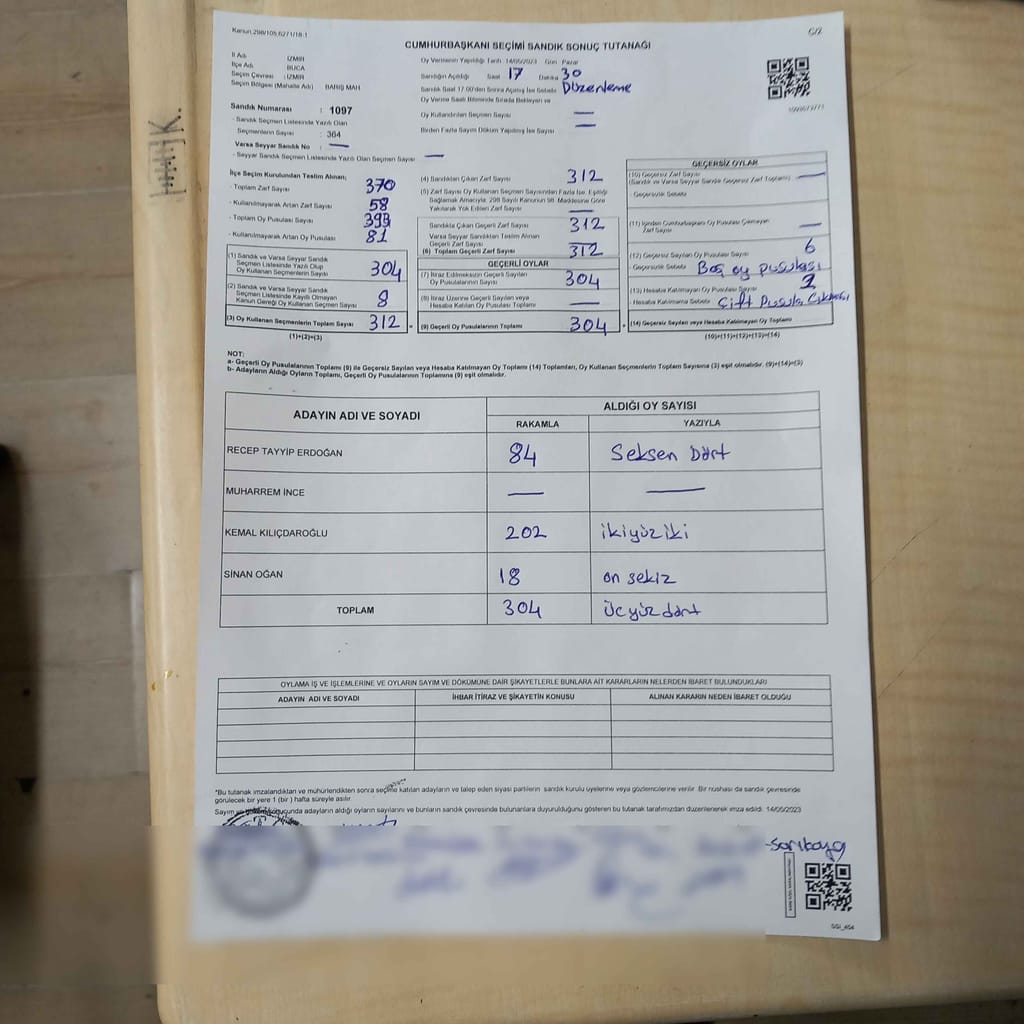 Kanun 298/105,6271/18-1
C/2
CUMHURBAŞKANI SEÇİMİ SANDIK SONUÇ TUTANAĞI
İl Adı İZMİR
İlçe Adı BUCA
Seçim Çevresi : İZMİR
Seçim Bölgesi (Mahalle Adı) BARIŞ MAH
Oy Vermenin Yapıldığı Tarih 14/05/2023 Gün Pazar
Sandığın Açıldığı Saat 17 Dakika 30
Sandık Saat 17.00'den Sonra Açılmış İse Sebebi Düzenleme
Oy Verme Saati Bitiminde Sırada Bekleyen ve
Oy Kullandırılan Seçmen Sayısı —
Birden Fazla Sayım Döküm Yapılmış İse Sayısı —
Sandık Numarası : 1097
- Sandık Seçmen Listesinde Yazılı Olan
Seçmenlerin Sayısı : 364
Varsa Seyyar Sandık No : —
- Seyyar Sandık Seçmen Listesinde Yazılı Olan Seçmen Sayısı —
İlçe Seçim Kurulundan Teslim Alınan;
- Toplam Zarf Sayısı 370
- Kullanılmayarak Artan Zarf Sayısı 58
- Toplam Oy Pusulası Sayısı 393
- Kullanılmayarak Artan Oy Pusulası 81
(1) Sandık ve Varsa Seyyar Sandık
Seçmen Listesinde Yazılı Olup
Oy Kullanan Seçmenlerin Sayısı 304
(2) Sandık ve Varsa Seyyar Sandık
Seçmen Listesinde Kayıtlı Olmayan
Kanun Gereği Oy Kullanan Seçmen Sayısı 8
(3) Oy Kullanan Seçmenlerin Toplam Sayısı 312
(1)+(2)=(3)
(4) Sandıktan Çıkan Zarf Sayısı 312
(5) Zarf Sayısı Oy Kullanan Seçmen Sayısından Fazla İse, Eşitliği
Sağlamak Amacıyla, 298 Sayılı Kanunun 98. Maddesine Göre
Yakılarak Yok Edilen Zarf Sayısı —
Sandıkta Çıkan Geçerli Zarf Sayısı 312
Varsa Seyyar Sandıktan Teslim Alınan
Geçerli Zarf Sayısı —
(6) Toplam Geçerli Zarf Sayısı 312
GEÇERLİ OYLAR
(7) İtiraz Edilmeksizin Geçerli Sayılan
Oy Pusulalarının Sayısı 304
(8) İtiraz Üzerine Geçerli Sayılan veya
Hesaba Katılan Oy Pusulası Toplamı —
(9) Geçerli Oy Pusulalarının Toplamı 304
GEÇERSİZ OYLAR
(10) Geçersiz Zarf Sayısı
(Sandık ve Varsa Seyyar Sandık Geçersiz Zarf Toplamı) —
- Geçersizlik Sebebi
(11) İçinden Cumhurbaşkanı Oy Pusulası Çıkmayan
Zarf Sayısı —
(12) Geçersiz Sayılan Oy Pusulası Sayısı 6
- Geçersizlik Sebebi Boş oy pusulası
(13) Hesaba Katılmayan Oy Pusulası Sayısı
- Hesaba Katılmama Sebebi Çift Pusula Çıkması
(14) Geçersiz Sayılan veya Hesaba Katılmayan Oy Toplamı
(10)+(11)+(12)+(13)=(14)
NOT:
a- Geçerli Oy Pusulalarının Toplamı (9) ile Geçersiz Sayılan veya Hesaba Katılmayan Oy Toplamı (14) Toplamları, Oy Kullanan Seçmenlerin Toplam Sayısına (3) eşit olmalıdır. (9)+(14)=(3)
b- Adayların Aldığı Oyların Toplamı, Geçerli Oy Pusulalarının Toplamına (9) eşit olmalıdır.
ADAYIN ADI VE SOYADI ALDIĞI OY SAYISI
RAKAMLA YAZIYLA
RECEP TAYYİP ERDOĞAN 84 Seksen Dört
MUHARREM İNCE — —
KEMAL KILIÇDAROĞLU 202 ikiyüziki
SİNAN OĞAN 18 on sekiz
TOPLAM 304 Üçyüzdört
OYLAMA İŞ VE İŞLEMLERİNE VE OYLARIN SAYIM VE DÖKÜMÜNE DAİR ŞİKAYETLERLE BUNLARA AİT KARARLARIN NELERDEN İBARET BULUNDUKLARI
ADAYIN ADI VE SOYADI İHBAR İTİRAZ VE ŞİKAYETİN KONUSU ALINAN KARARIN NEDEN İBARET OLDUĞU
*Bu tutanak imzalandıktan ve mühürlendikten sonra seçime katılan adayların ve talep eden siyasi partilerin sandık kurulu üyelerine veya gözlemcilerine verilir. Bir nüshası da sandık çevresinde
görülecek bir yere 1 (bir ) hafta süreyle asılır.
Sayım ve döküm sonucunda adayların aldığı oyların sayılarını ve bunların sandık çevresinde bulunanlara duyurulduğunu gösteren bu tutanak tarafımızdan düzenlenerek imza edildi. 14/05/2023